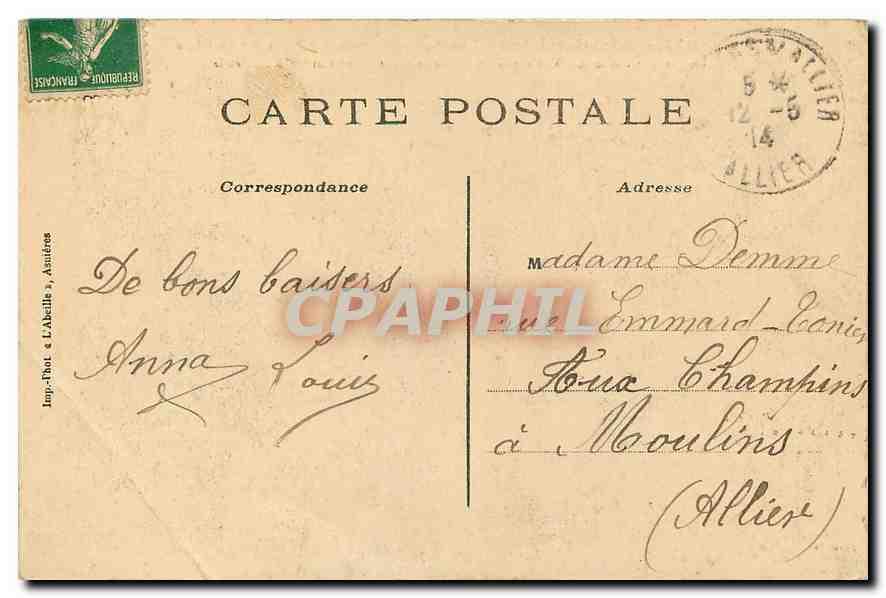 REPUBLIQUE
FRANÇAISE
CARTE POSTALE
S/ALLIER
12 -5
14
ALLIER
Correspondance
Adresse
Imp.-Phot « L'Abeille », Asnières
De bons baisers
Anna Louis
CPAPHIL
Madame Demme
rue Emmard-Tonier
Aux Champins
à Moulins
(Allier)